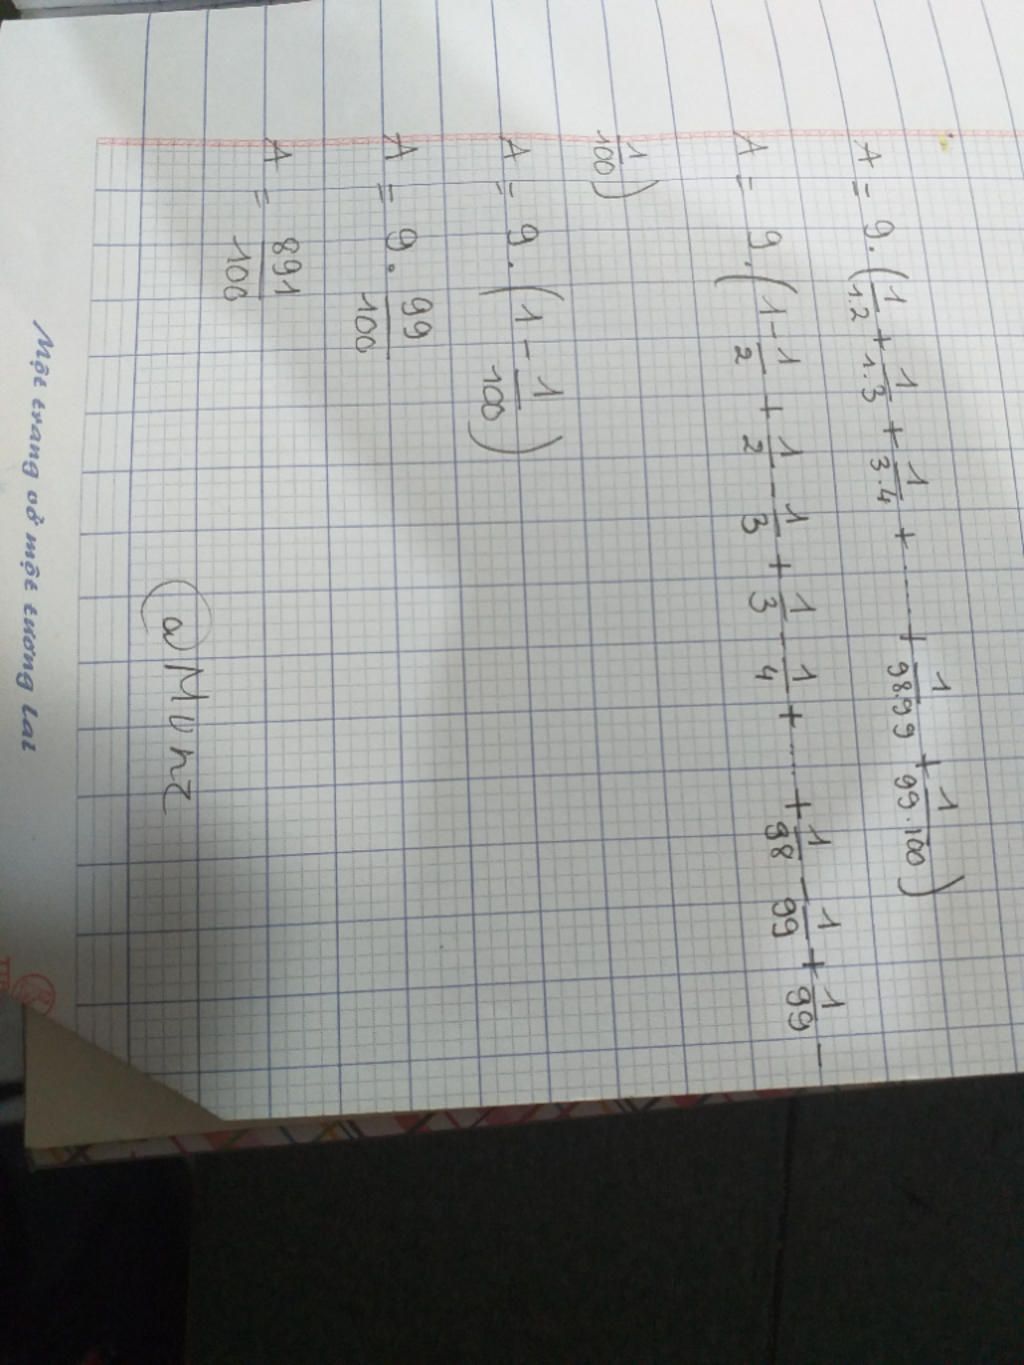 A = 9.(1/1.2 + 1/1.3 + 1/3.4 + ...... + 1/98.99 + 1/99.100)
A = 9.(1 - 1/2 + 1/2 - 1/3 + 1/3 - 1/4 + ...... + 1/98 - 1/99 + 1/99 -
1/100)
A = 9.(1 - 1/100)
A = 9. 99/100
A = 891/100
@Munz
Một trang vở một tương lai